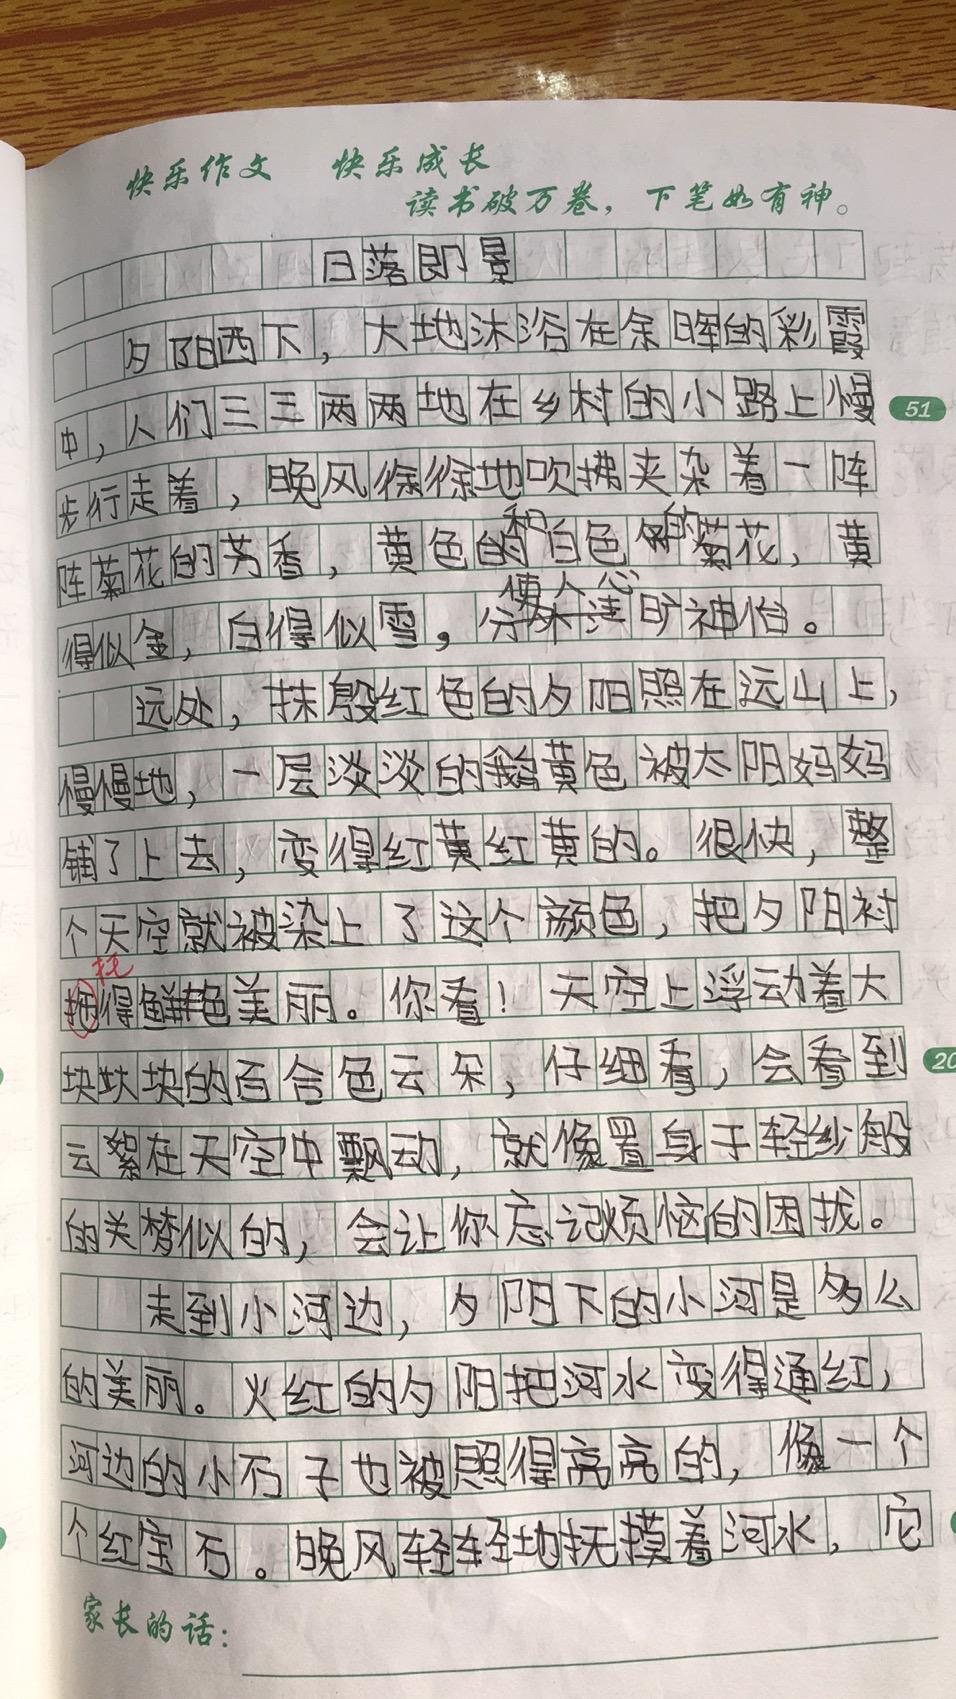 快乐作文 快乐成长
读书破万卷，下笔如有神。
日落即景
夕阳西下，大地沐浴在余晖的彩霞
中，人们三三两两地在乡村的小路上慢
步行走着，晚风徐徐地吹拂夹杂着一阵
阵菊花的芳香，黄色的和白色的菊花，黄
得似金，白得似雪，使人心旷神怡。
远处，抹殷红色的夕阳照在远山上，
慢慢地，一层淡淡的鹅黄色被太阳妈妈
铺了上去，变得红黄红黄的。很快，整
个天空就被染上了这个颜色，把夕阳衬
得鲜艳美丽。你看！天空上浮动着大
块块块的百合色云朵，仔细看，会看到
云絮在天空中飘动，就像置身于轻纱般
的美梦似的，会让你忘记烦恼的困扰。
走到小河边，夕阳下的小河是多么
的美丽。火红的夕阳把河水变得通红，
河边的小石子也被照得亮亮的，像一个
个红宝石。晚风轻轻地抚摸着河水，它
家长的话：
51
20